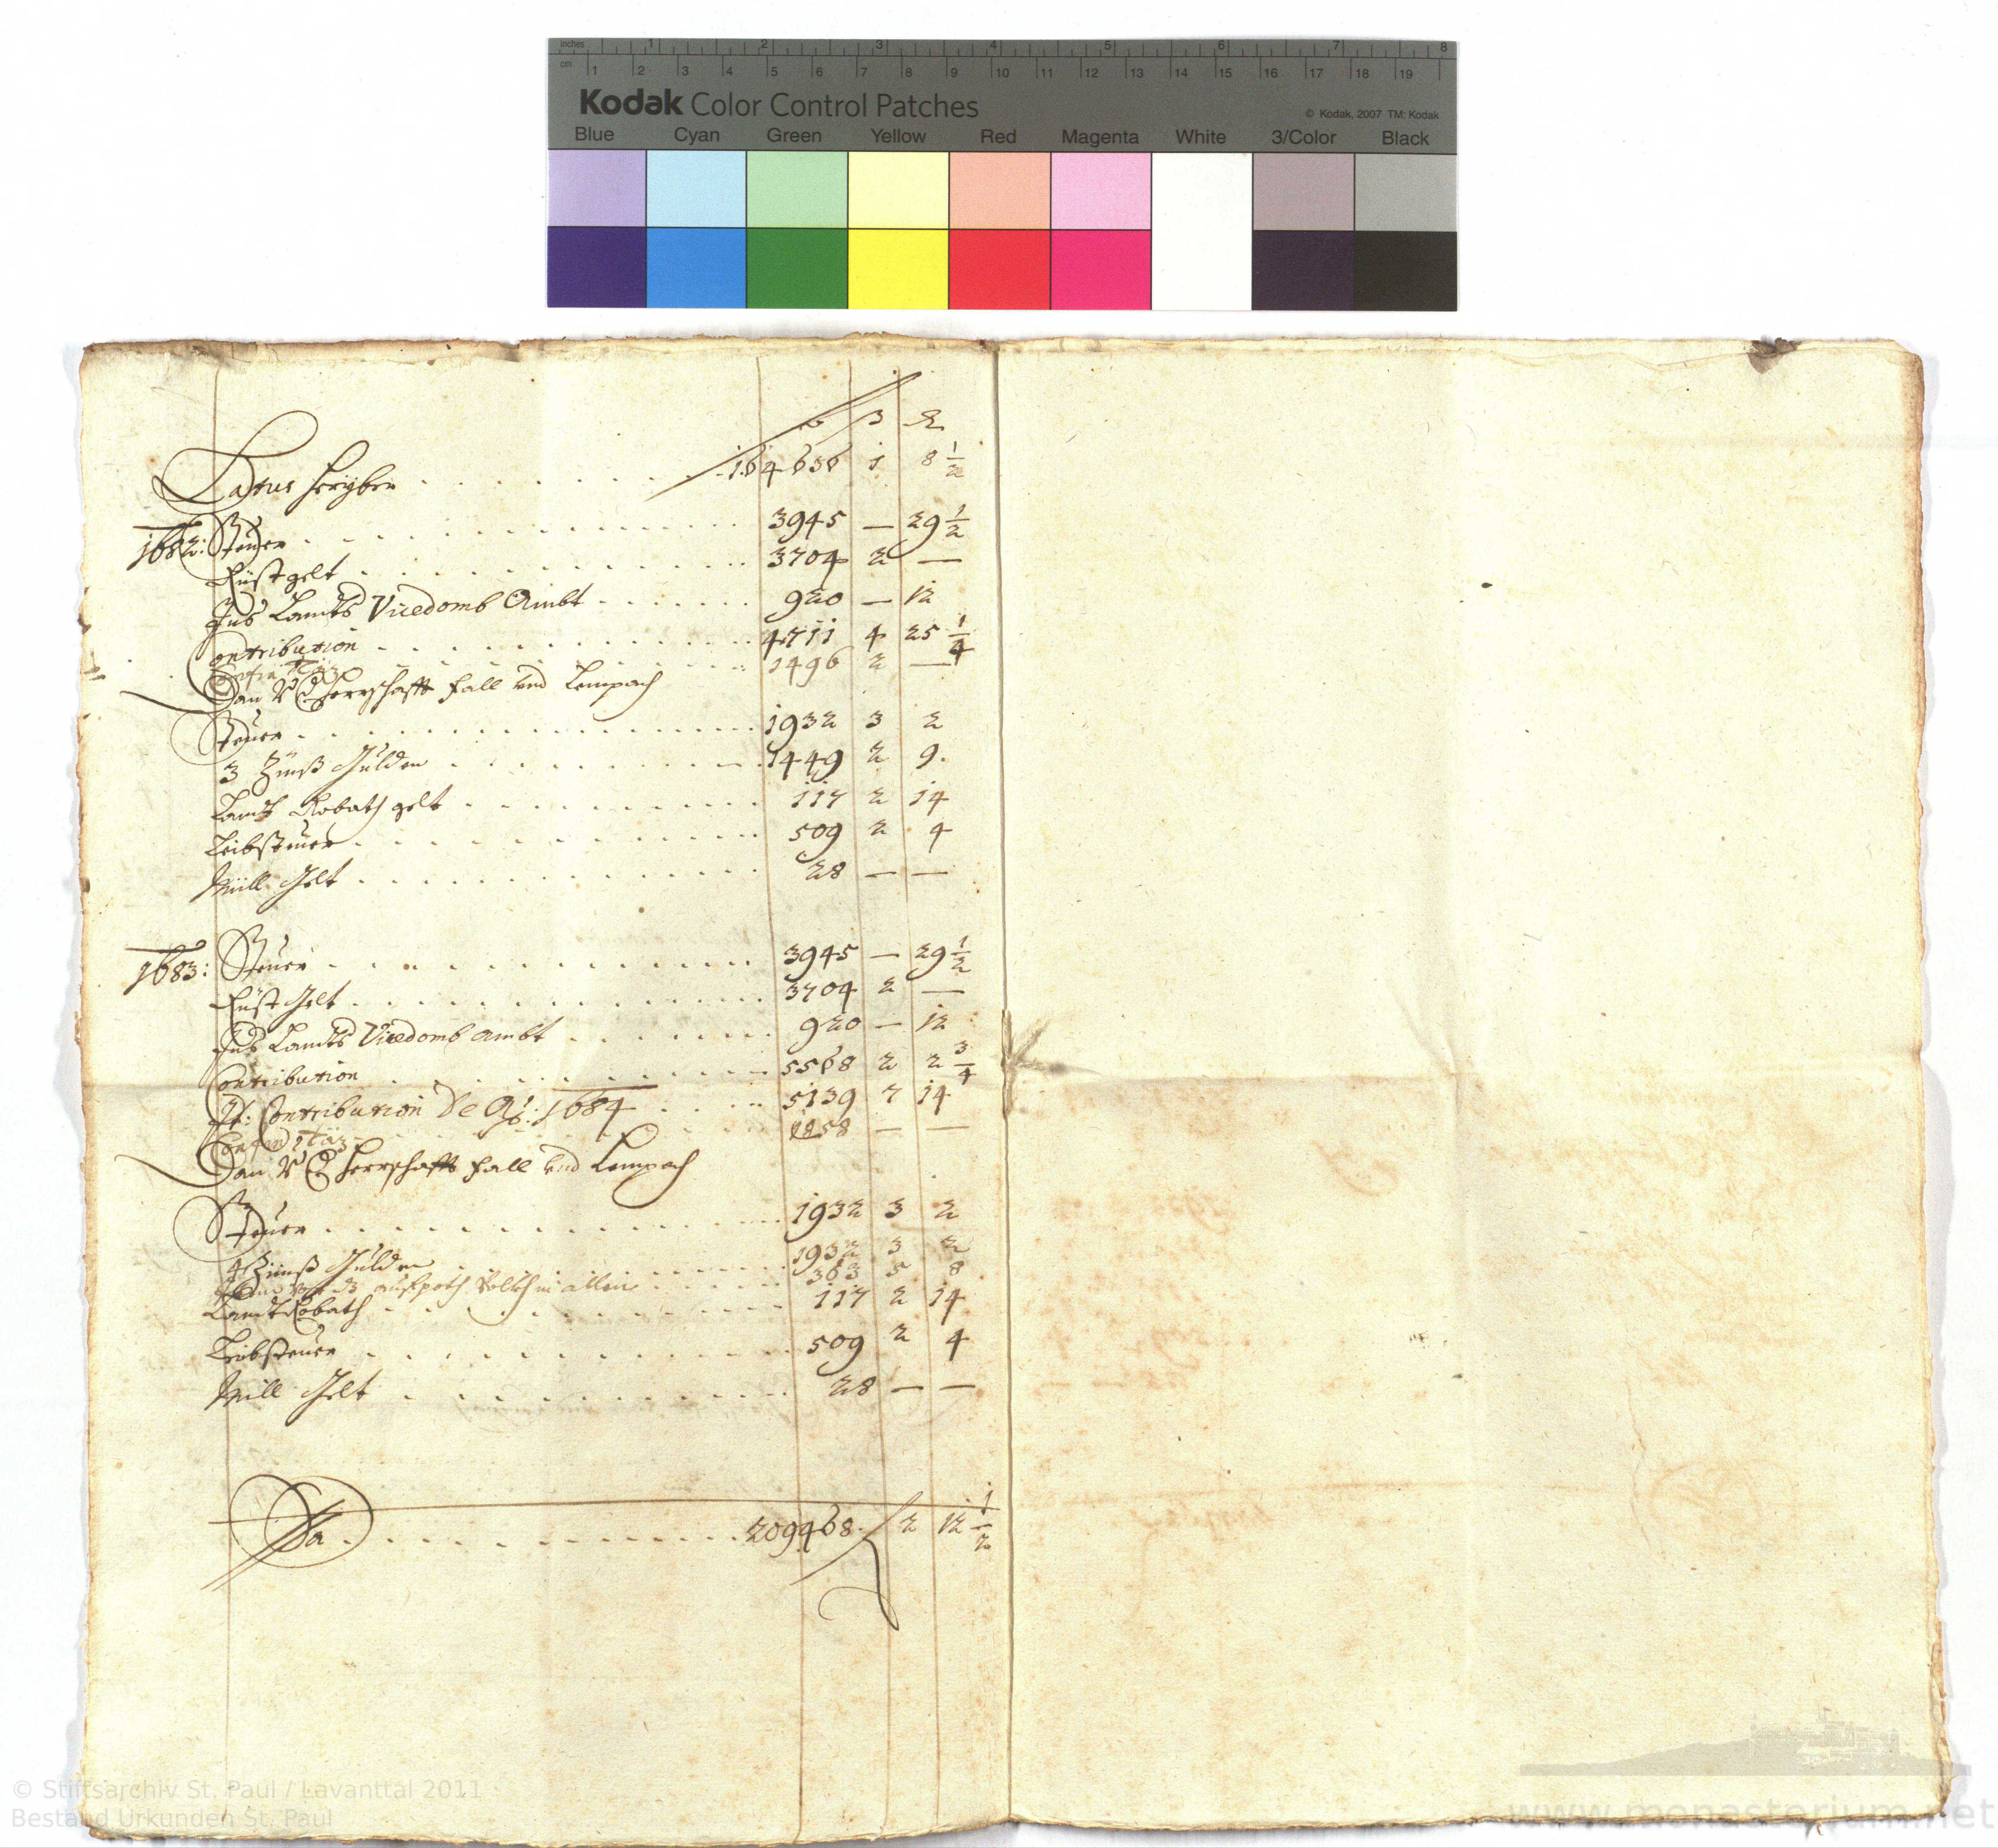 inches 1 2 3 4 5 6 7 8
cm 1 2 3 4 5 6 7 8 9 10 11 12 13 14 15 16 17 18 19
Kodak Color Control Patches © Kodak, 2007 TM: Kodak
Blue Cyan Green Yellow Red Magenta White 3/Color Black
Latus herüber . . . . . . . 164656 1 8 1/2
1682: Steuer . . . . . . . 3945 — 29 1/2
Rüst gelt . . . . . . . 3704 2 —
Ins Landts Vicedomb Ambt . . . . . . . 920 — 12
Contribution . . . . . . . 4711 4 25 1/4
1496 2 —
Herrschafft Fall vnd Lempach
Steuer . . . . . . . 1932 3 2
3 Zinß Gulden . . . . . . . 1449 2 9.
Landt Robath gelt . . . . . . . 117 2 14
Leibsteuer . . . . . . . 509 2 4
Müll Gelt . . . . . . . 28 — —
1683: Steuer . . . . . . . 3945 — 29 1/2
Rüst Gelt . . . . . . . 3704 2 —
Ins Landts Vicedomb ambt . . . . . . . 920 — 12
Contribution . . . . . . . 5568 2 2 3/4
It: Contribution de Ao: 1684 . . . . 5139 7 14
1858 — —
Herrschafft Fall vnd Lempach
Steuer . . . . . . . 1932 3 2
4 Zinß Gulden . . . . . . . 1932 3 2
363 5 8
Landt Robath . . . . . . . 117 2 14
Leibsteuer . . . . . . . 509 2 4
Mill Gelt . . . . . . . 28 — —
Sa . . . . . . . 209468. 2 12 1/2
© Stiftsarchiv St. Paul / Lavanttal 2011
Bestand Urkunden St. Paul
www.monasterium.net